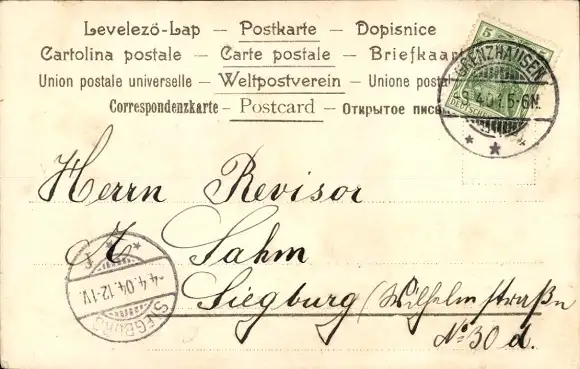 Levelező-Lap — Postkarte — Dopisnice
Cartolina postale — Carte postale — Briefkaart
Union postale universelle — Weltpostverein — Unione postal
Correspondenzkarte – Postcard – Открытое пис
5 5
GRENZHAUSEN
3.4.04.5-6N.
Herrn Revisor
Sahm
Siegburg (Wilhelmstraße
No 30 d.
SIEGBURG
-4.4.04.12-1V.